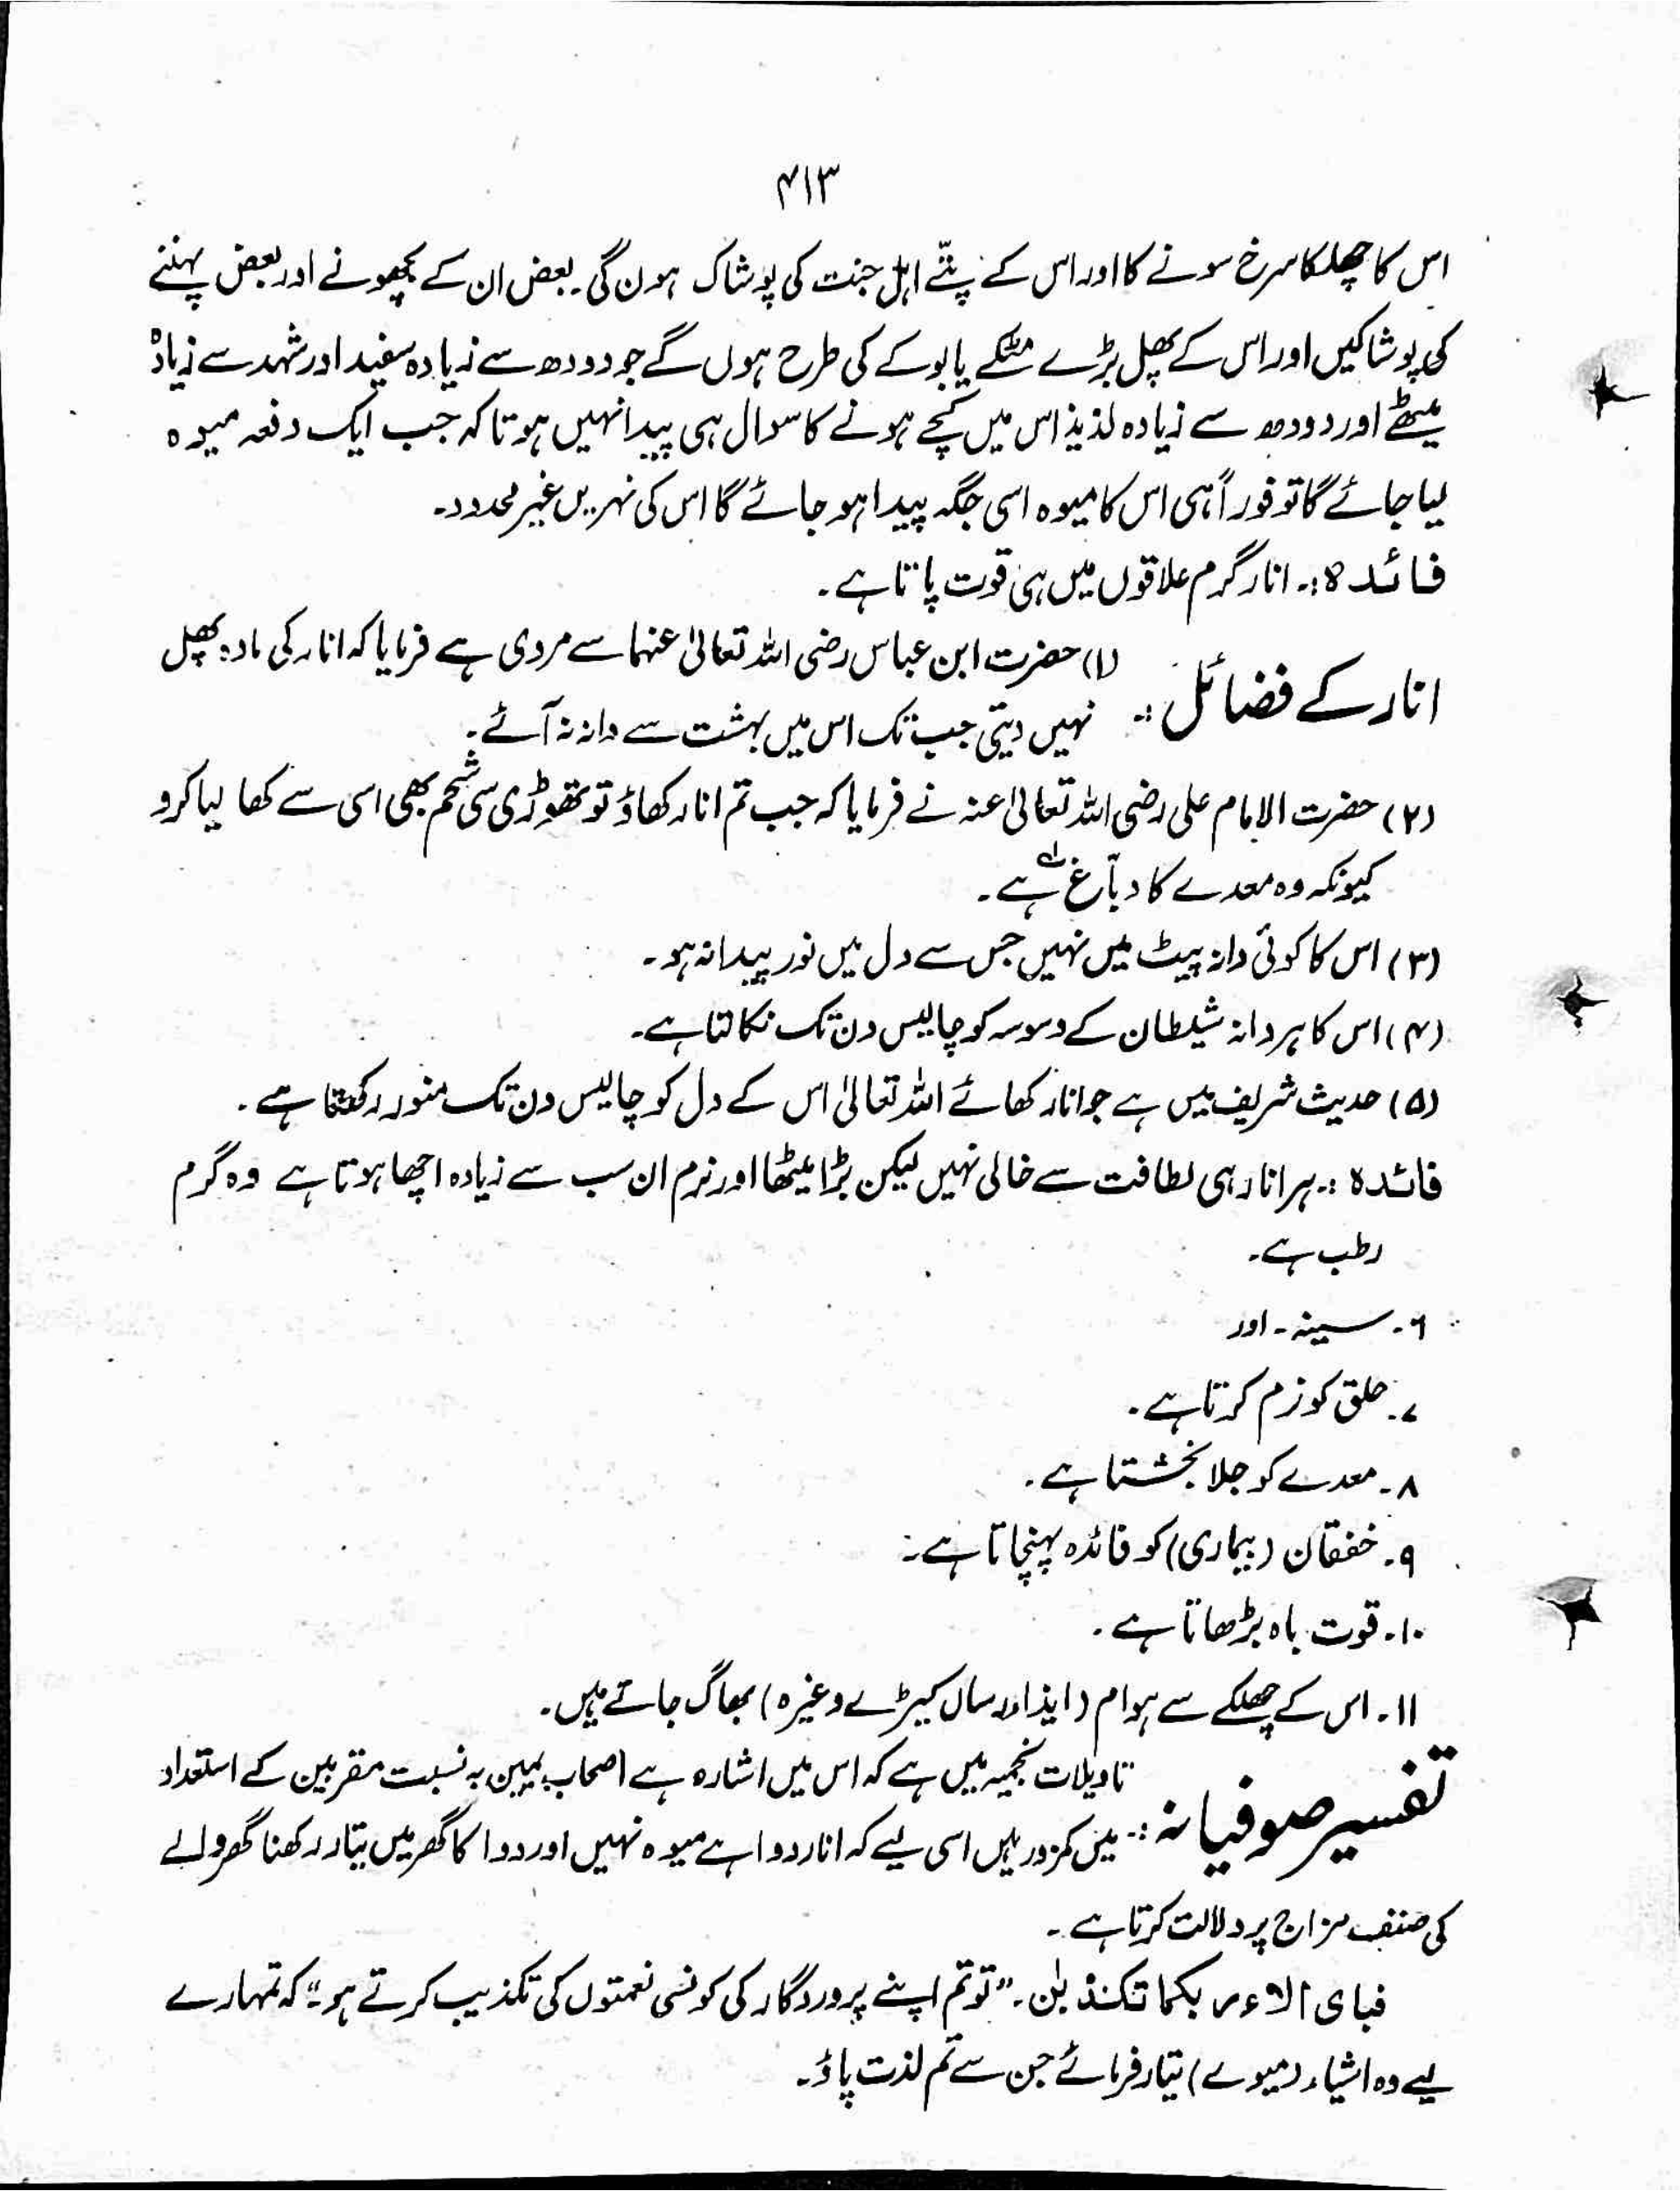 ۴۱۳
اس کا چھلکا سرخ سونے کا اور اس کے پتّے اہل جنت کی پوشاک ہوں گی۔ بعض ان کے بچھونے اور بعض پہننے
کی پوشاکیں اور اس کے پھل بڑے مٹکے یا بوکے کی طرح ہوں گے جو دودھ سے زیادہ سفید اور شہد سے زیادہ
میٹھے اور دودھ سے زیادہ لذیذ اس میں کچے ہونے کا سوال ہی پیدا نہیں ہوتا کہ جب ایک دفعہ میوہ
لیا جائے گا تو فوراً ہی اس کا میوہ اسی جگہ پیدا ہو جائے گا اس کی نہریں غیر محدود۔
فائدہ :۔ انار گرم علاقوں میں ہی قوت پاتا ہے۔
انار کے فضائل :۔ (۱) حضرت ابن عباس رضی اللہ تعالیٰ عنہما سے مروی ہے فرمایا کہ انار کی مادہ پھل
نہیں دیتی جب تک اس میں بہشت سے دانہ نہ آئے۔
(۲) حضرت الامام علی رضی اللہ تعالیٰ عنہ نے فرمایا کہ جب تم انار کھاؤ تو تھوڑی سی شحم بھی اسی سے کھا لیا کرو
کیونکہ وہ معدے کا دبّاغ ہے۔
(۳) اس کا کوئی دانہ پیٹ میں نہیں جس سے دل میں نور پیدا نہ ہو۔
(۴) اس کا ہر دانہ شیطان کے وسوسہ کو چالیس دن تک نکالتا ہے۔
(۵) حدیث شریف میں ہے جو انار کھائے اللہ تعالیٰ اس کے دل کو چالیس دن تک منور رکھتا ہے۔
فائدہ :۔ ہر انار ہی لطافت سے خالی نہیں لیکن بڑا میٹھا اور نرم ان سب سے زیادہ اچھا ہوتا ہے وہ گرم
رطب ہے۔
۶۔ سینہ۔ اور
۷۔ حلق کو نرم کرتا ہے۔
۸۔ معدے کو جلا بخشتا ہے۔
۹۔ خفقان (بیماری) کو فائدہ پہنچاتا ہے۔
۱۰۔ قوت باہ بڑھاتا ہے۔
۱۱۔ اس کے چھلکے سے ہوام (ایذا رساں کیڑے وغیرہ) بھاگ جاتے ہیں۔
تفسیر صوفیانہ :۔ تاویلات نجمیہ میں ہے کہ اس میں اشارہ ہے اصحاب یمین بہ نسبت مقربین کے استعداد
میں کمزور ہیں اسی لیے کہ انار دوا ہے میوہ نہیں اور دوا کا گھر میں تیار رکھنا گھر والے
کی ضعف مزاج پر دلالت کرتا ہے۔
فبای الاء ربکما تکذبٰن۔ "تو تم اپنے پروردگار کی کونسی نعمتوں کی تکذیب کرتے ہو۔" کہ تمہارے
لیے وہ اشیاء (میوے) تیار فرمائے جن سے تم لذت پاؤ۔